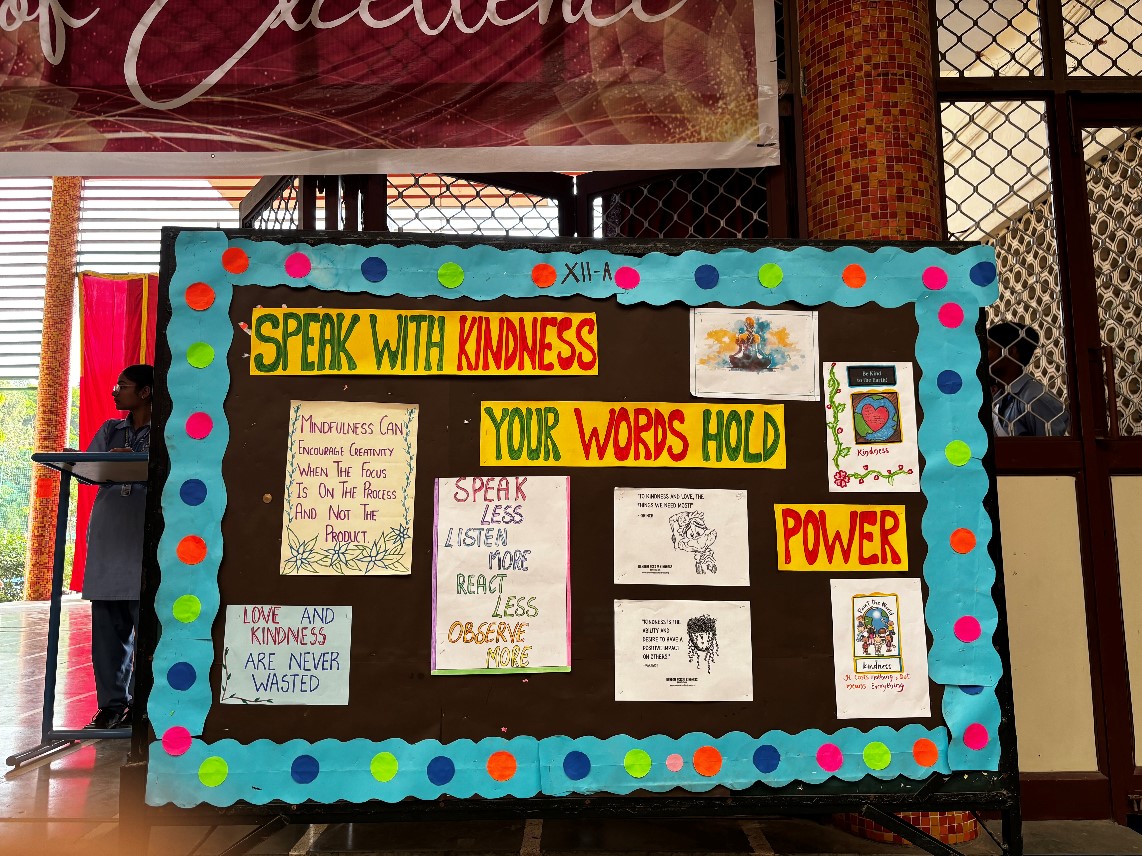 of Excellence
XII-A
SPEAK WITH KINDNESS
YOUR WORDS HOLD
POWER
MINDFULNESS CAN
ENCOURAGE CREATIVITY
WHEN THE FOCUS
IS ON THE PROCESS
AND NOT THE
PRODUCT.
SPEAK
LESS
LISTEN
MORE
REACT
LESS
OBSERVE
MORE
LOVE AND
KINDNESS
ARE NEVER
WASTED
"IS KINDNESS AND LOVE, THE
THINGS WE NEED MOST?"
"KINDNESS IS THE
ABILITY AND
DESIRE TO HAVE A
POSITIVE IMPACT
ON OTHERS."
Be Kind
to the Earth!
Kindness
Paint The World
kindness
It costs nothing, but
means Everything